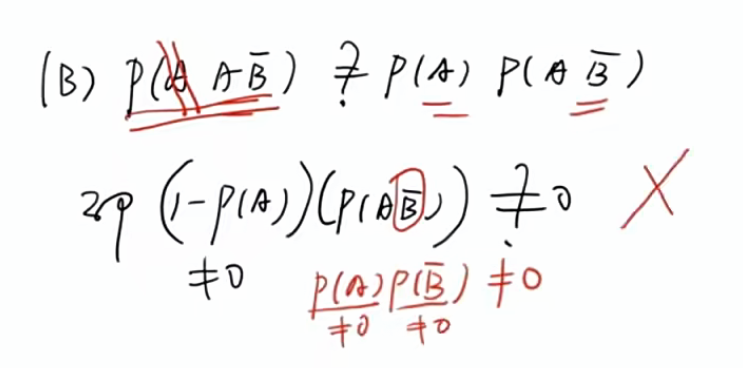 (B) P(A A B̄) ≟ P(A) P(A B̄)
即 (1-P(A))(P(AB̄)) ≟ 0 ×
≠0 P(A)P(B̄) ≠0
≠0 ≠0